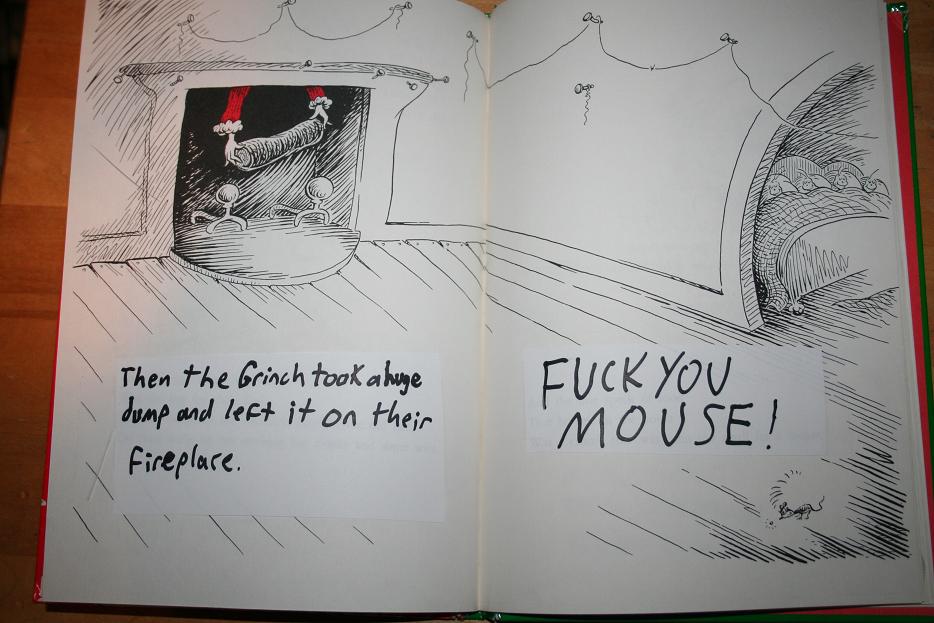 Then the Grinch took a huge
dump and left it on their
fireplace.
FUCK YOU
MOUSE!